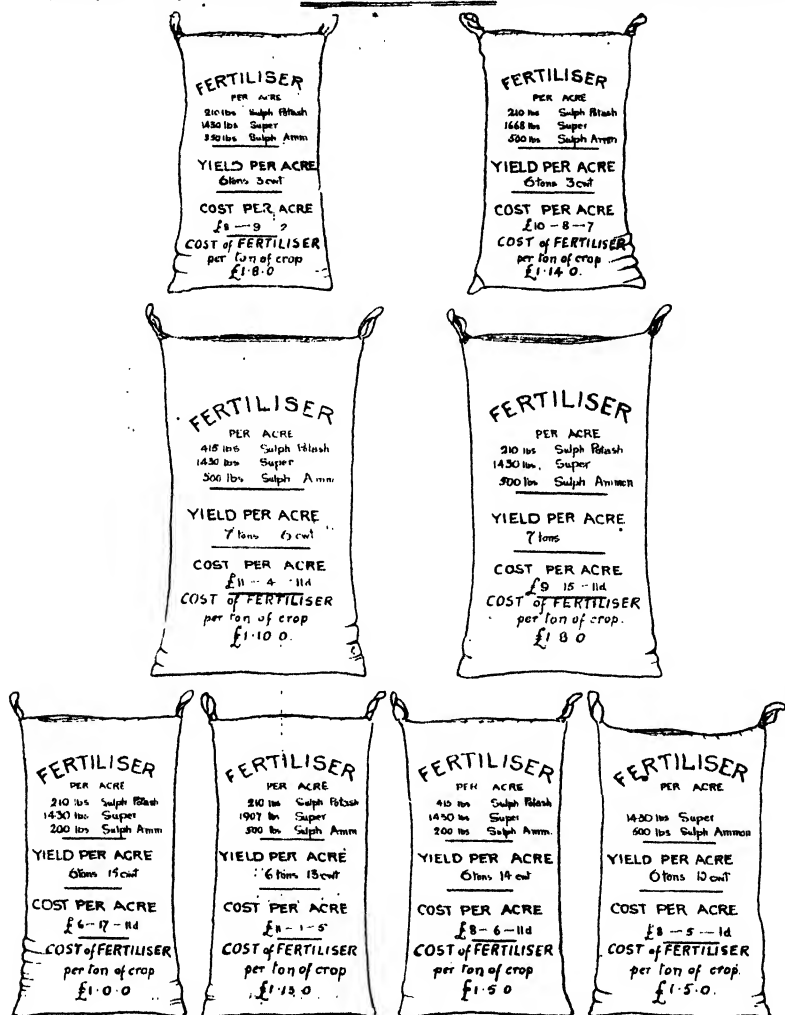 FERTILISER
PER ACRE
210 lbs Sulph Potash
1430 lbs Super
350 lbs Sulph Amm
YIELD PER ACRE
6 tons 3 cwt
COST PER ACRE
£8 - 9
COST of FERTILISER
per ton of crop
£1.8.0
FERTILISER
PER ACRE
210 lbs Sulph Potash
1668 lbs Super
500 lbs Sulph Amm
YIELD PER ACRE
6 tons 3 cwt
COST PER ACRE
£10 - 8 - 7
COST of FERTILISER
per ton of crop
£1.14 0.
FERTILISER
PER ACRE
415 lbs Sulph Potash
1430 lbs Super
500 lbs Sulph Amm
YIELD PER ACRE
7 tons cwt
COST PER ACRE
£11 - 4 - 11d
COST of FERTILISER
per ton of crop
£1.10 0.
FERTILISER
PER ACRE
210 lbs Sulph Potash
1430 lbs. Super
500 lbs Sulph Ammon
YIELD PER ACRE
7 tons
COST PER ACRE
£9 15 - 11d
COST of FERTILISER
per ton of crop.
£1 8 0
FERTILISER
PER ACRE
210 lbs Sulph Potash
1430 lbs. Super
200 lbs Sulph Amm
YIELD PER ACRE
6 tons cwt
COST PER ACRE
£6 - 17 - 11d
COST of FERTILISER
per ton of crop
£1.0.0
FERTILISER
PER ACRE
210 lbs Sulph Potash
1907 lbs Super
500 lbs Sulph Amm
YIELD PER ACRE
6 tons 13 cwt
COST PER ACRE
£11 - 1 - 5
COST of FERTILISER
per ton of crop
£1.13 0
FERTILISER
PER ACRE
415 lbs Sulph Potash
1430 lbs Super
200 lbs Sulph Amm.
YIELD PER ACRE
6 tons 14 cwt
COST PER ACRE
£8 - 6 - 11d
COST of FERTILISER
per ton of crop
£1.5 0
FERTILISER
PER ACRE
1430 lbs Super
500 lbs Sulph Ammon
YIELD PER ACRE
6 tons cwt
COST PER ACRE
£8 - 5 - 1d
COST of FERTILISER
per ton of crop.
£1.5.0.